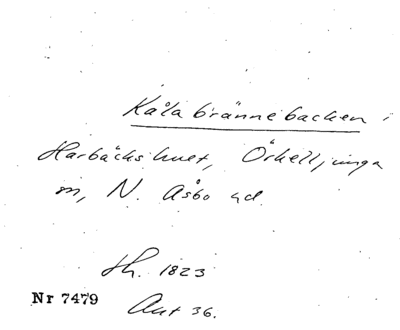 Kåla brännebacken i
Harbäckshult, Örkelljunga
sn, N. Åsbo hd.
Sh. 1823
Nr 7479
Akt 36.